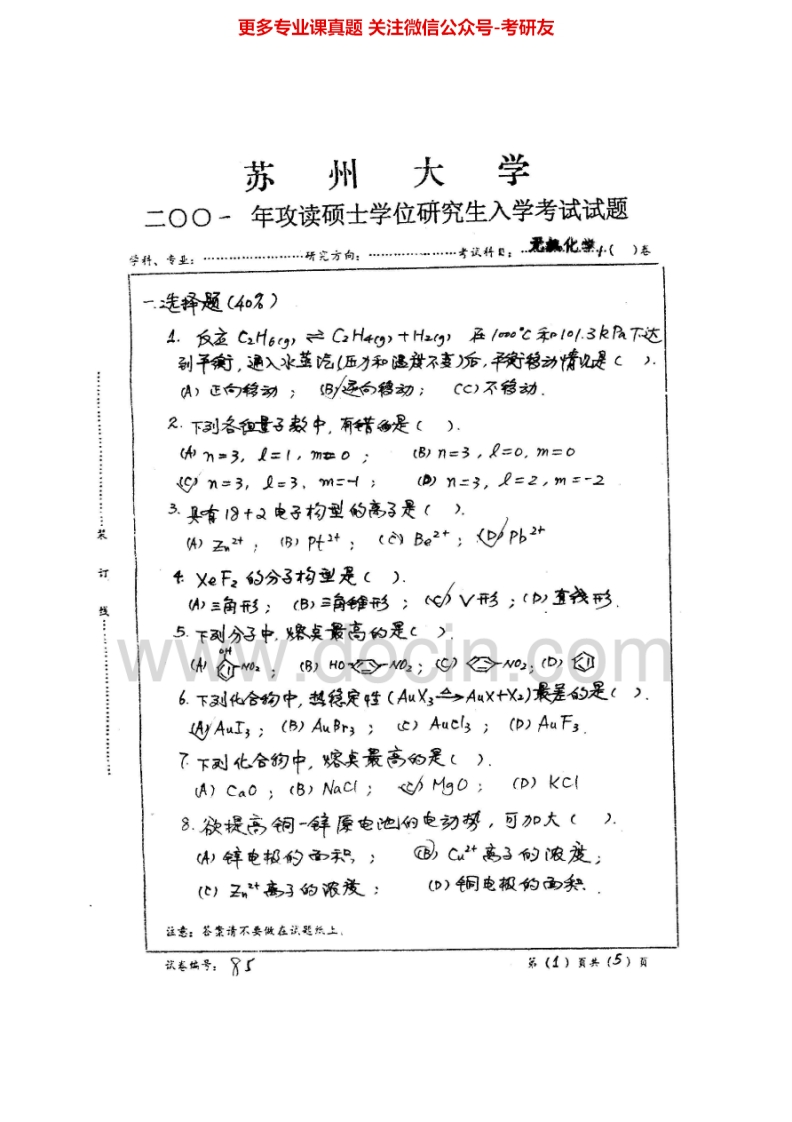 更多专业课真题 关注微信公众号-考研友
苏州大学
二〇〇一 年攻读硕士学位研究生入学考试试题
学科、专业：……………………研究方向：…………………考试科目：…无机化学…( )卷
一.选择题(40%)
1. 反应 C₂H₆(g) ⇌ C₂H₄(g) + H₂(g) 在1000℃和101.3kPa下达
到平衡，通入水蒸汽(压力和温度不变)后，平衡移动情况是( ).
(A) 正向移动； (B) 逆向移动； (C) 不移动.
2. 下列各组量子数中，有错的是( ).
(A) n=3, l=1, m=0； (B) n=3, l=0, m=0
(C) n=3, l=3, m=-1； (D) n=3, l=2, m=-2
3. 具有18+2电子构型的离子是( ).
(A) Zn²⁺； (B) Pt²⁺； (C) Be²⁺； (D) Pb²⁺
4. XeF₂的分子构型是( ).
(A) 三角形； (B) 三角锥形； (C) V形； (D) 直线形.
5. 下列分子中，熔点最高的是( ).
(A) OH NO₂； (B) HO NO₂； (C) NO₂； (D)
6. 下列化合物中，热稳定性(AuX₃ ⇌ AuX+X₂)最差的是( ).
(A) AuI₃； (B) AuBr₃； (C) AuCl₃； (D) AuF₃.
7. 下列化合物中，熔点最高的是( ).
(A) CaO； (B) NaCl； (C) MgO； (D) KCl
8. 欲提高铜-锌原电池的电动势，可加大( ).
(A) 锌电极的面积； (B) Cu²⁺离子的浓度；
(C) Zn²⁺离子的浓度； (D) 铜电极的面积.
注意：答案请不要做在试题纸上.
试卷编号：85 第(1)页共(5)页
装
订
线
www.docin.com